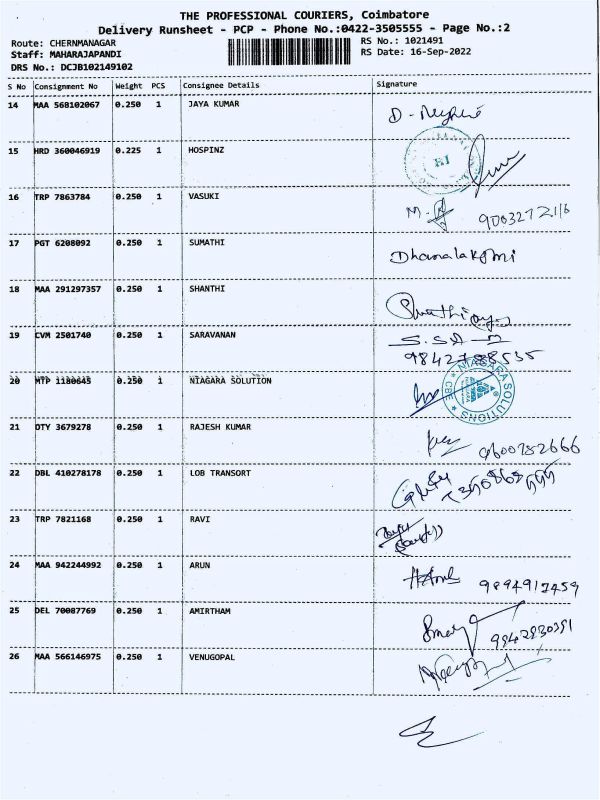 THE PROFESSIONAL COURIERS, Coimbatore
Delivery Runsheet - PCP - Phone No.:0422-3505555 - Page No.:2
Route: CHERNMANAGAR RS No.: 1021491
Staff: MAHARAJAPANDI RS Date: 16-Sep-2022
DRS No.: DCJB102149102
S No Consignment No Weight PCS Consignee Details Signature
14 MAA 568102067 0.250 1 JAYA KUMAR
15 HRD 360046919 0.225 1 HOSPINZ
16 TRP 7863784 0.250 1 VASUKI
17 PGT 6208092 0.250 1 SUMATHI Dhanalakshmi
18 MAA 291297357 0.250 1 SHANTHI
19 CVM 2501740 0.250 1 SARAVANAN
20 MTP 1180645 0.250 1 NIAGARA SOLUTION NIAGARA SOLUTIONS CBE
21 OTY 3679278 0.250 1 RAJESH KUMAR 9600782666
22 DBL 410278178 0.250 1 LOB TRANSORT
23 TRP 7821168 0.250 1 RAVI
24 MAA 942244992 0.250 1 ARUN
25 DEL 70087769 0.250 1 AMIRTHAM
26 MAA 566146975 0.250 1 VENUGOPAL